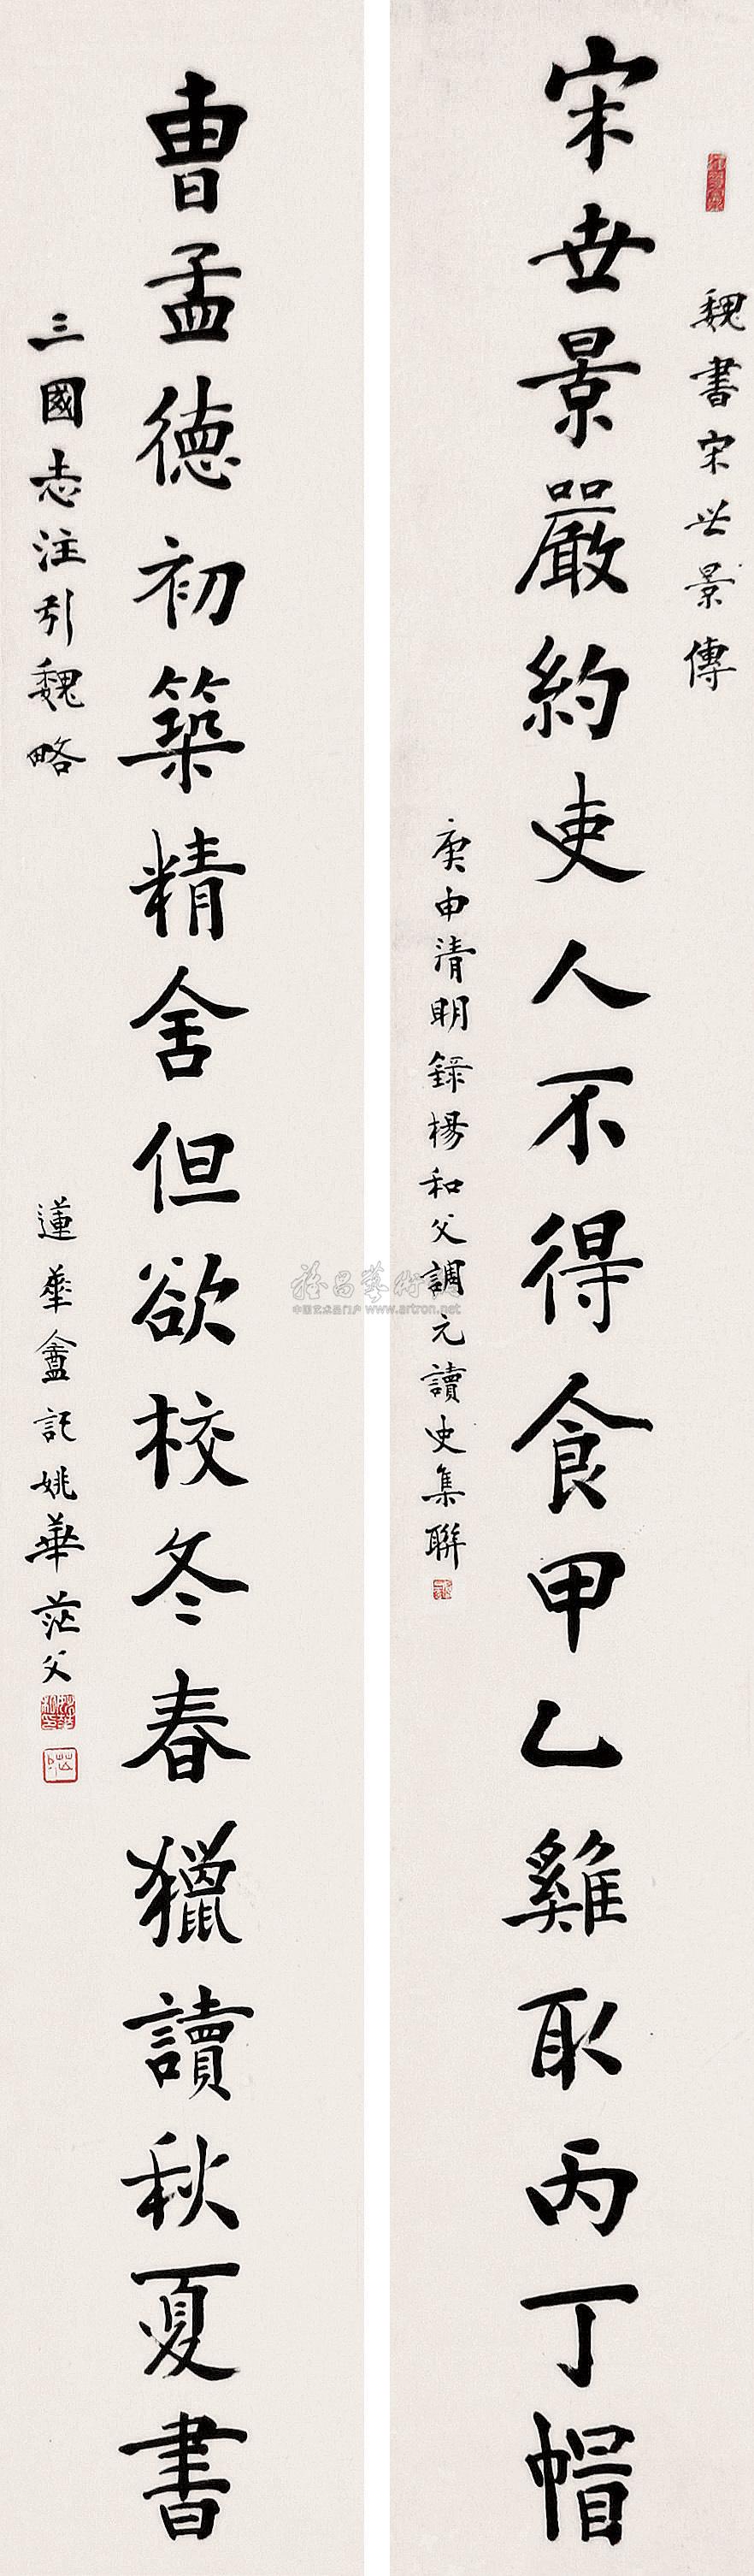 魏書宋世景傳
宋世景嚴約吏人不得食甲乙雞取丙丁帽
庚申清明錄楊和父調元讀史集聯
曹孟德初築精舍但欲校冬春獵讀秋夏書
三國志注引魏略
蓮華盦記姚華茫父
中国艺术品门户 www.artron.net